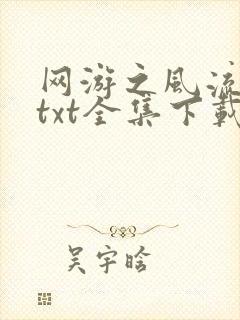 网游之风流
txt全集下载
吴宇晗